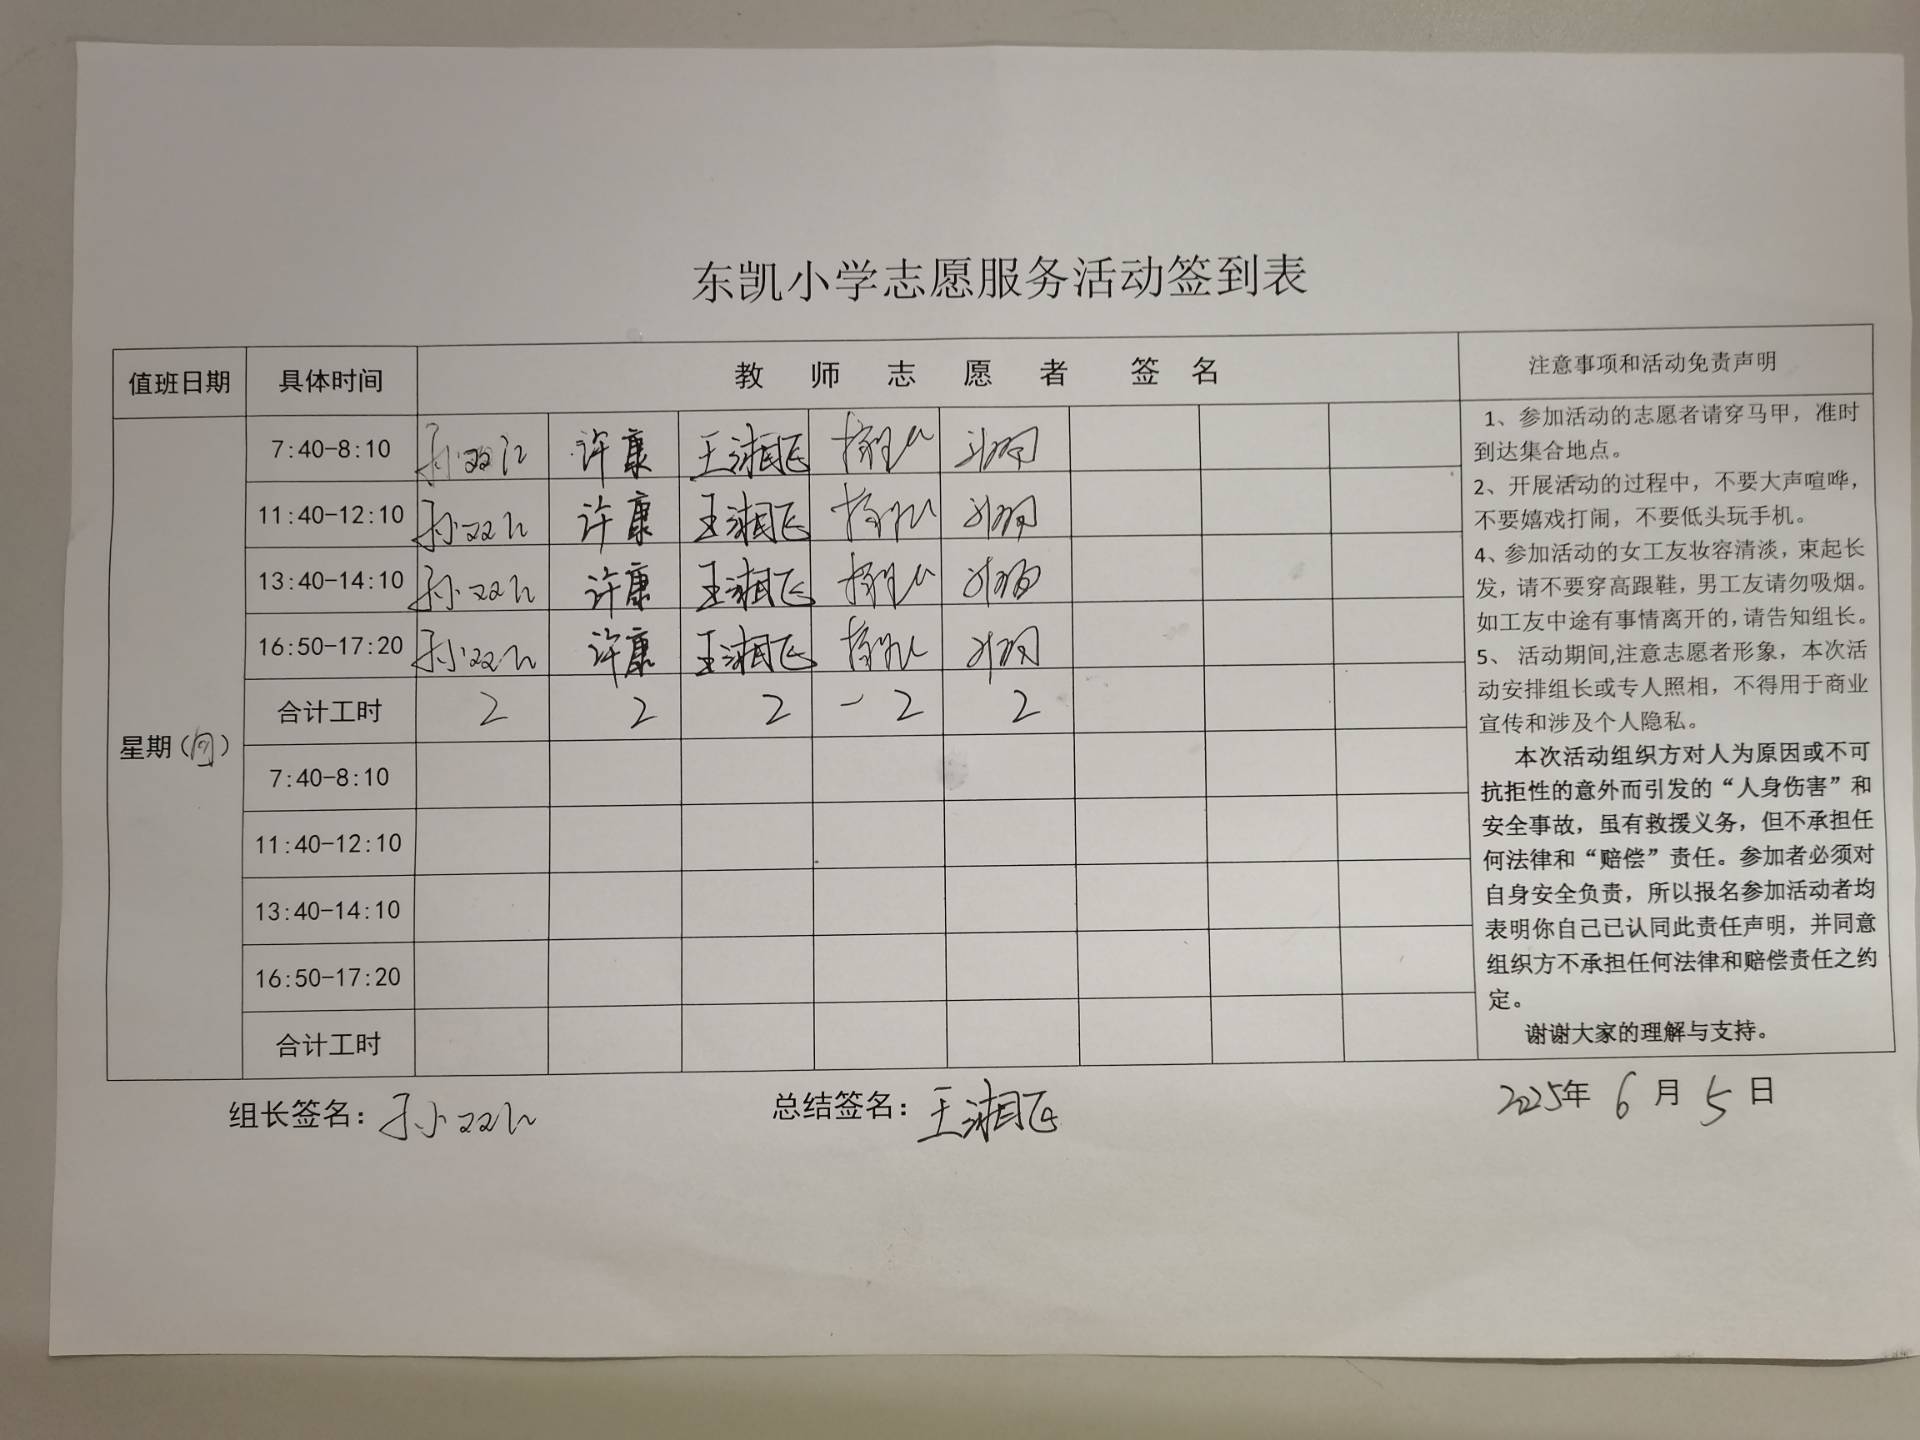 东凯小学志愿服务活动签到表
值班日期 具体时间 教 师 志 愿 者 签 名 注意事项和活动免责声明
7:40-8:10 孙双 许康 王湘飞
11:40-12:10 孙双 许康 王湘飞
13:40-14:10 孙双 许康 王湘飞
16:50-17:20 孙双 许康 王湘飞
合计工时 2 2 2 2 2
星期( )
7:40-8:10
11:40-12:10
13:40-14:10
16:50-17:20
合计工时
1、参加活动的志愿者请穿马甲，准时
到达集合地点。
2、开展活动的过程中，不要大声喧哗，
不要嬉戏打闹，不要低头玩手机。
4、参加活动的女工友妆容清淡，束起长
发，请不要穿高跟鞋，男工友请勿吸烟。
如工友中途有事情离开的，请告知组长。
5、 活动期间,注意志愿者形象，本次活
动安排组长或专人照相，不得用于商业
宣传和涉及个人隐私。
本次活动组织方对人为原因或不可
抗拒性的意外而引发的“人身伤害”和
安全事故，虽有救援义务，但不承担任
何法律和“赔偿”责任。参加者必须对
自身安全负责，所以报名参加活动者均
表明你自己已认同此责任声明，并同意
组织方不承担任何法律和赔偿责任之约
定。
谢谢大家的理解与支持。
组长签名：孙双 总结签名：王湘飞 2025年 6 月 5 日